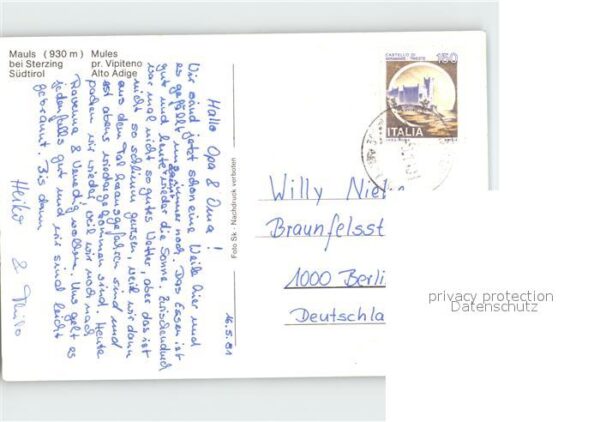 Mauls (930 m)
bei Sterzing
Südtirol
Mules
pr. Vipiteno
Alto Adige
Hallo Opa & Oma!
Wir sind jetzt schon eine Weile hier und
es gefällt uns immer noch. Das Essen ist
gut und heute wieder die Sonne. Zwischendurch
war mal nicht so gutes Wetter, aber das ist
nicht so schlimm gewesen, weil wir dann
aus dem Tal herausgefahren sind und
erst abends wiedergekommen sind. Heute
packen wir wieder, weil wir noch nach
Ravenna & Venedig wollen. Uns geht es
jedenfalls gut und wir sind leicht
gebräunt. Bis dann
Heiko & Thilo
16.5.81
Foto Sk - Nachdruck verboten
CASTELLO DI
MIRAMARE · TRIESTE
150
ITALIA
Willy
Braunfelsst
1000 Berli
Deutschla
privacy protection
Datenschutz